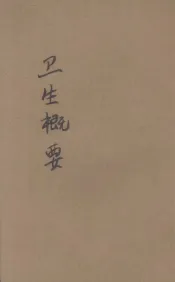 卫生概要